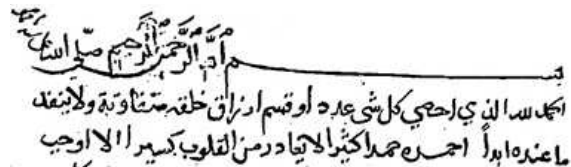 بسم الله الرحمن الرحيم صلى الله
الحمد لله الذي احصى كل شى عددا وقسم ارزاق خلقه متفاوتة ولا ينفد
ما عنده ابداً احمده حمدا كثيرا لا يغادر من القلوب كسيرا الا اوجب